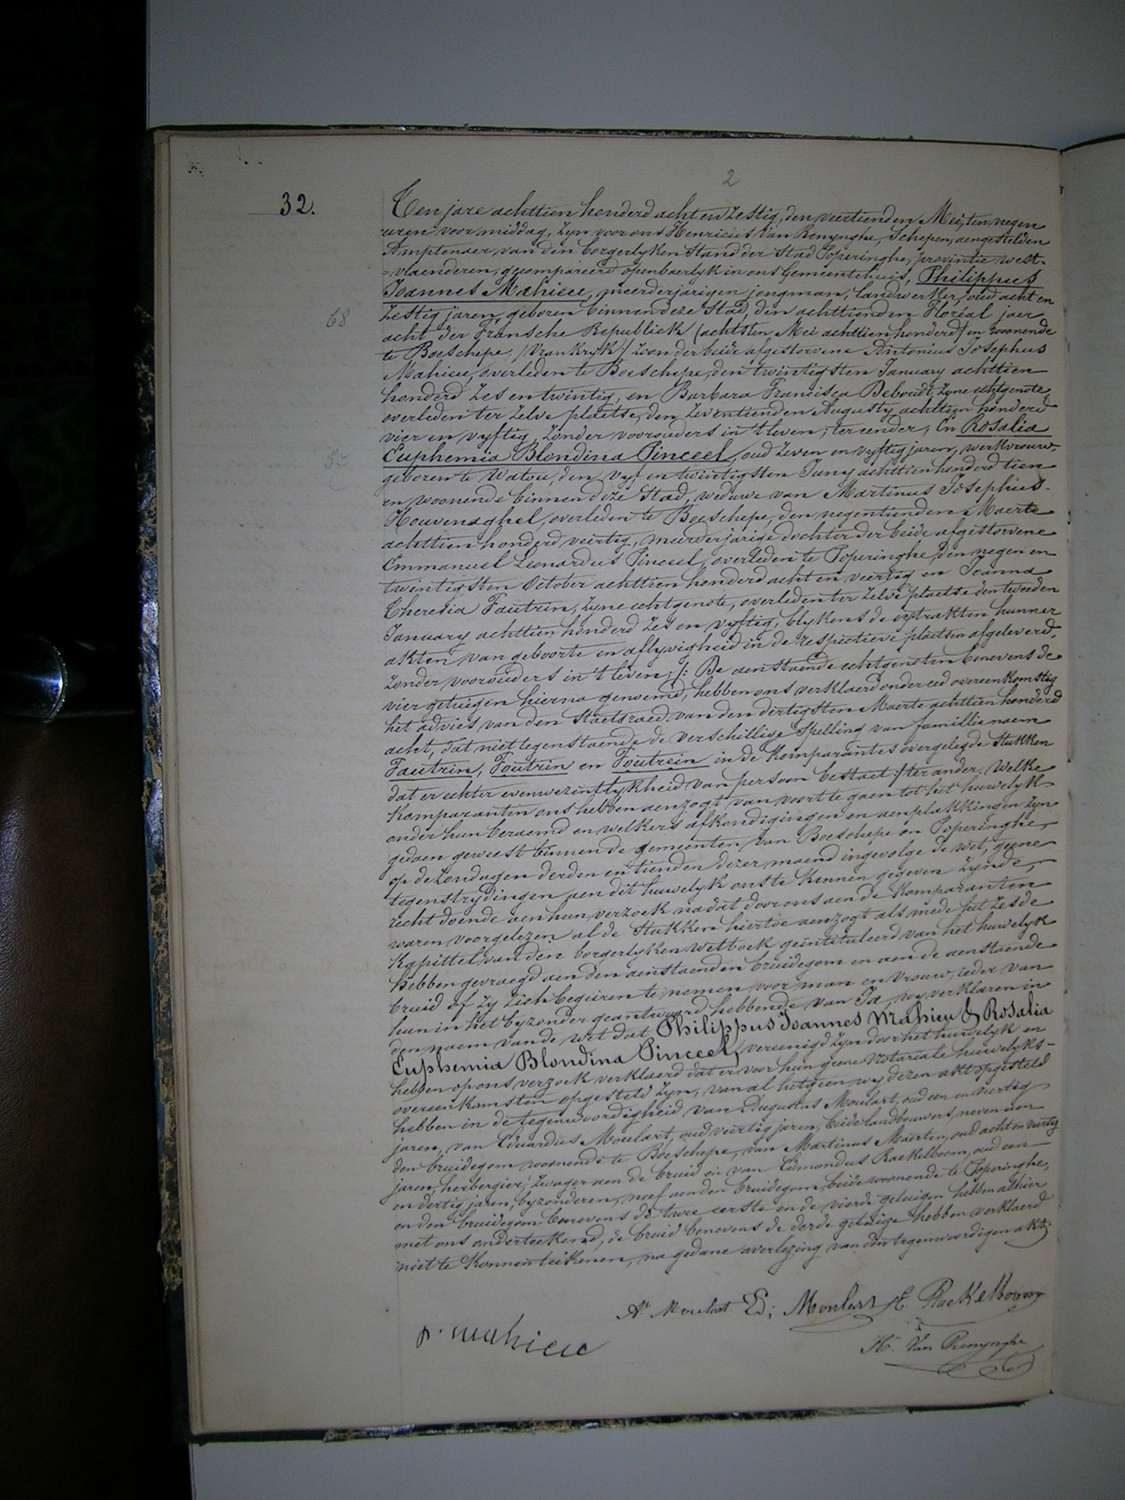 2
32.
Ten jare achttien honderd acht en zestig, den veertienden Mei, ten negen
uren voor middag, zyn voor ons Henricus Van Renynghe, Schepen, aengestelden
Amptenaer van den borgerlyken Stand der Stad Poperinghe, provintie west-
-vlaenderen, gecompareerd openbaerlyk in ons Gemeentehuis, Philippus
Joannes Mahieu, meerderjarigen jongman, landwerker, oud acht en
zestig jaren, geboren binnen deze Stad, den achttienden Floreal jaer
68
acht der Fransche Republiek (achtsten Mei achttien honderd) en woonende
te Boeschepe, (Vrankryk) zoon der beide afgestorvene Antonius Josephus
Mahieu, overleden te Boeschepe, den twintigsten January achttien
honderd zes en twintig, en Barbara Francisca Deboudt, zyne echtgenote,
overleden ter zelve plaetse, den zeventienden Augusty achttien honderd
vier en vyftig, zonder voorouders in 't leven, ter eender; En Rosalia
Euphemia Blondina Pinceel, oud zeven en vyftig jaren, werkvrouw,
57
geboren te Watou, den vyf en twintigsten Juny achttien honderd tien
en woonende binnen deze Stad, weduwe van Martinus Josephus
Houvenaghel, overleden te Boeschepe, den negentienden Maerte
achttien honderd veertig, meerderjarige dochter der beide afgestorvene
Emmanuel Leonardus Pinceel, overleden te Poperinghe, den negen en
twintigsten October achttien honderd acht en veertig en Joanna
Theresia Fautrin, zyne echtgenote, overleden ter zelve plaetse den tweeden
January achttien honderd zes en vyftig, blykens de extrakten hunner
akten van geboorte en aflyvigheid in de respectieve plaetsen afgeleverd,
zonder voorouders in 't leven; /: De aenstaende echtgenoten benevens de
vier getuigen hierna genoemd, hebben ons verklaerd onder eed overeenkomstig
het advies van den Staetsraed van den dertigsten Maerte achttien honderd
acht, dat niet tegenstaende de verschillige spelling van famillie naem
Fautrin, Foutrin en Foutrein in de Komparantes overgelegde stukken
dat er echter evenwezentlykheid van persoon bestaet / ter ander. Welke
Komparanten ons hebben aenzogt van voort te gaen tot het huwelyk
onder hun beraemd en welkers afkondigingen en aenplakkingen zyn
gedaen geweest binnen de gemeenten van Boeschepe en Poperinghe
op de Zondagen derden en tienden dezer maend ingevolge de wet, geene
tegenstrydingen aen dit huwelyk ons te kennen gegeven zynde,
recht doende aen hun verzoek na dat door ons aen de Komparanten
waren voorgelezen al de Stukken hiertoe aenzogt als mede het zesde
Kapittel van den borgerlyken wetboek geintituleerd van het huwelyk
hebben gevraegd aen den aenstaenden bruidegom en aen de aenstaende
bruid of zy zich begeiren te nemen voor man en vrouw, ieder van
hun in het byzonder geantwoord hebbende van Ja, wy verklaren in
den naem van de wet dat Philippus Joannes Mahieu & Rosalia
Euphemia Blondina Pinceel, vereenigd zyn door het huwelyk en
hebben op ons verzoek verklaerd dat er voor hun geene Notariale huwelyks-
overeenkomsten opgesteld zyn, van al hetgeen wy dezen akt opgesteld
hebben in de tegenwoordigheid, van Augustus Moulart, oud een en veertig
jaren, van Eduardus Moulart, oud veertig jaren, beide landbouwers, neven aen
den bruidegom woonende te Boeschepe, van Martinus Maerten, oud acht en veertig
jaren, herbergier, zwager aen de bruid en van Edmondus Raekelboom, oud een
en dertig jaren, byzonderen, neef aen den bruidegom, beide woonende te Poperinghe,
en den bruidegom benevens de twee eerste en de vierde getuigen hebben alhier
met ons onderteekend, de bruid benevens de derde getuige hebben verklaerd
niet te konnen teekenen, na gedane overlezing van den tegenwoordigen akt.
At Moulart Ed: Moulart E. Raekelboom
p. mahieu
H. Van Renynghe